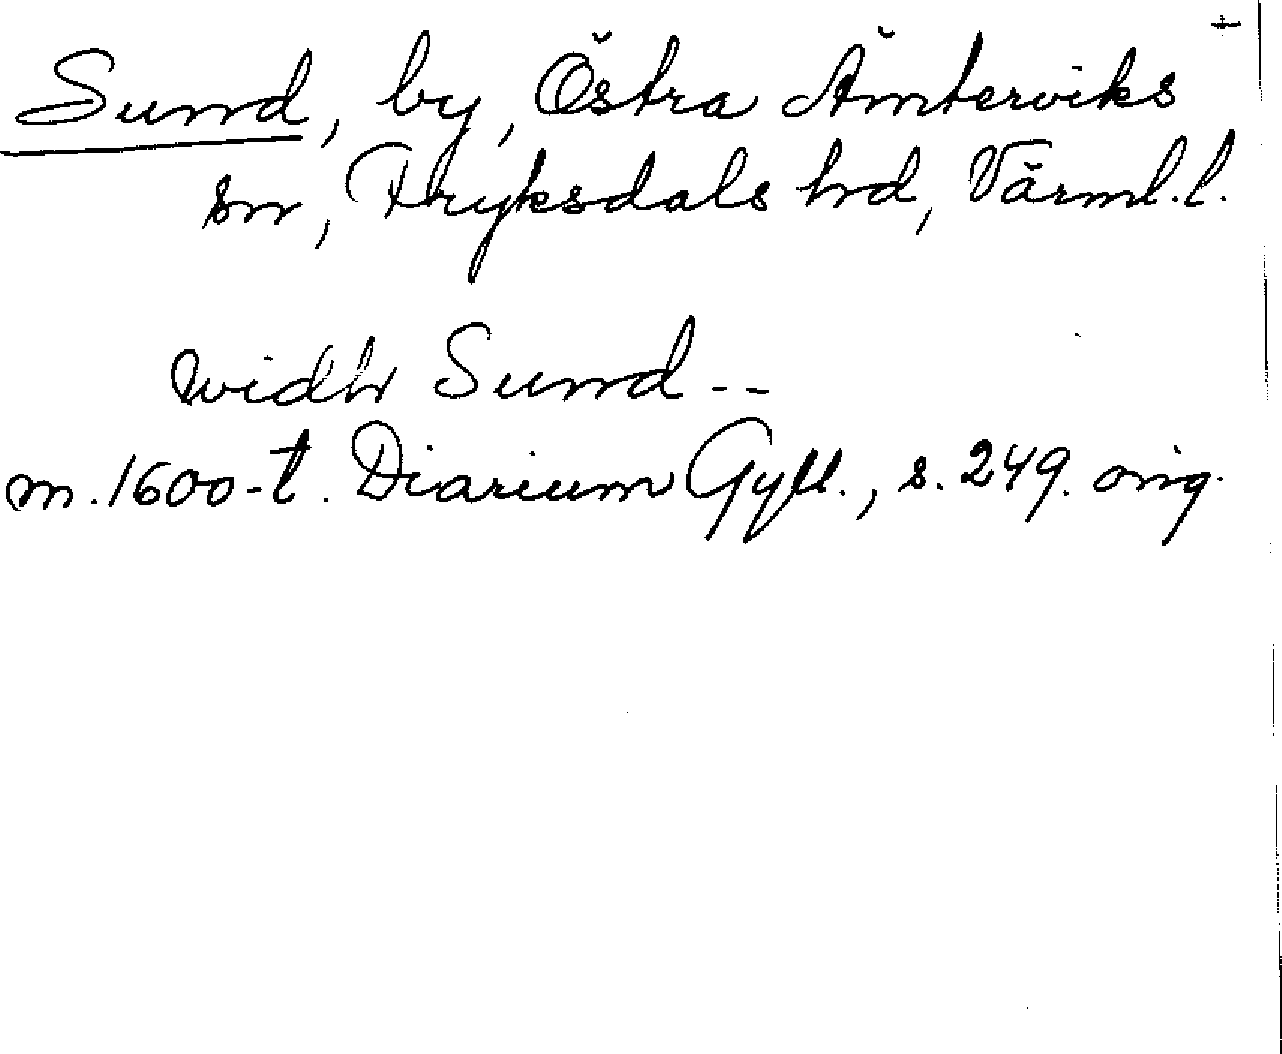 Sund, by, Östra Ämterviks
sn, Fryksdals hd, Värml.l.
widh Sund--
m. 1600-t. Diarium Gyll., s. 249. orig.